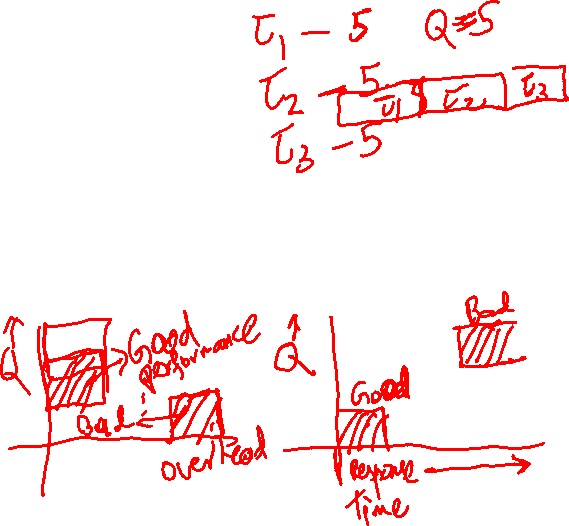 τ1 - 5 Q=5
τ2 - 5
τ1 τ2 τ3
τ3 - 5
Q
Good
performance
Bad
overhead
Q
Bad
Good
Response
Time